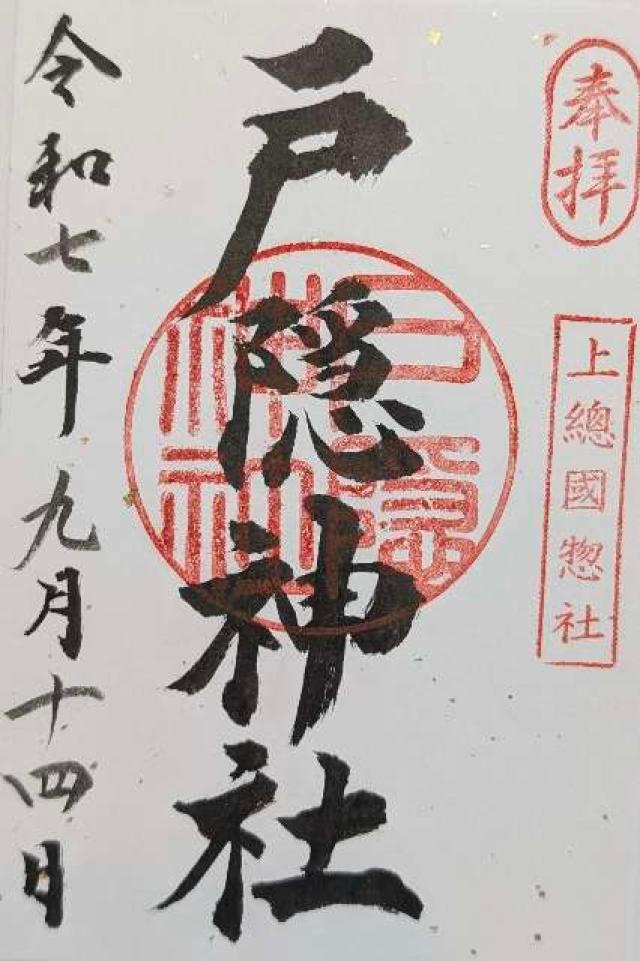 奉拝
上總國惣社
戸隠神社
戸隠神社
令和七年九月十四日